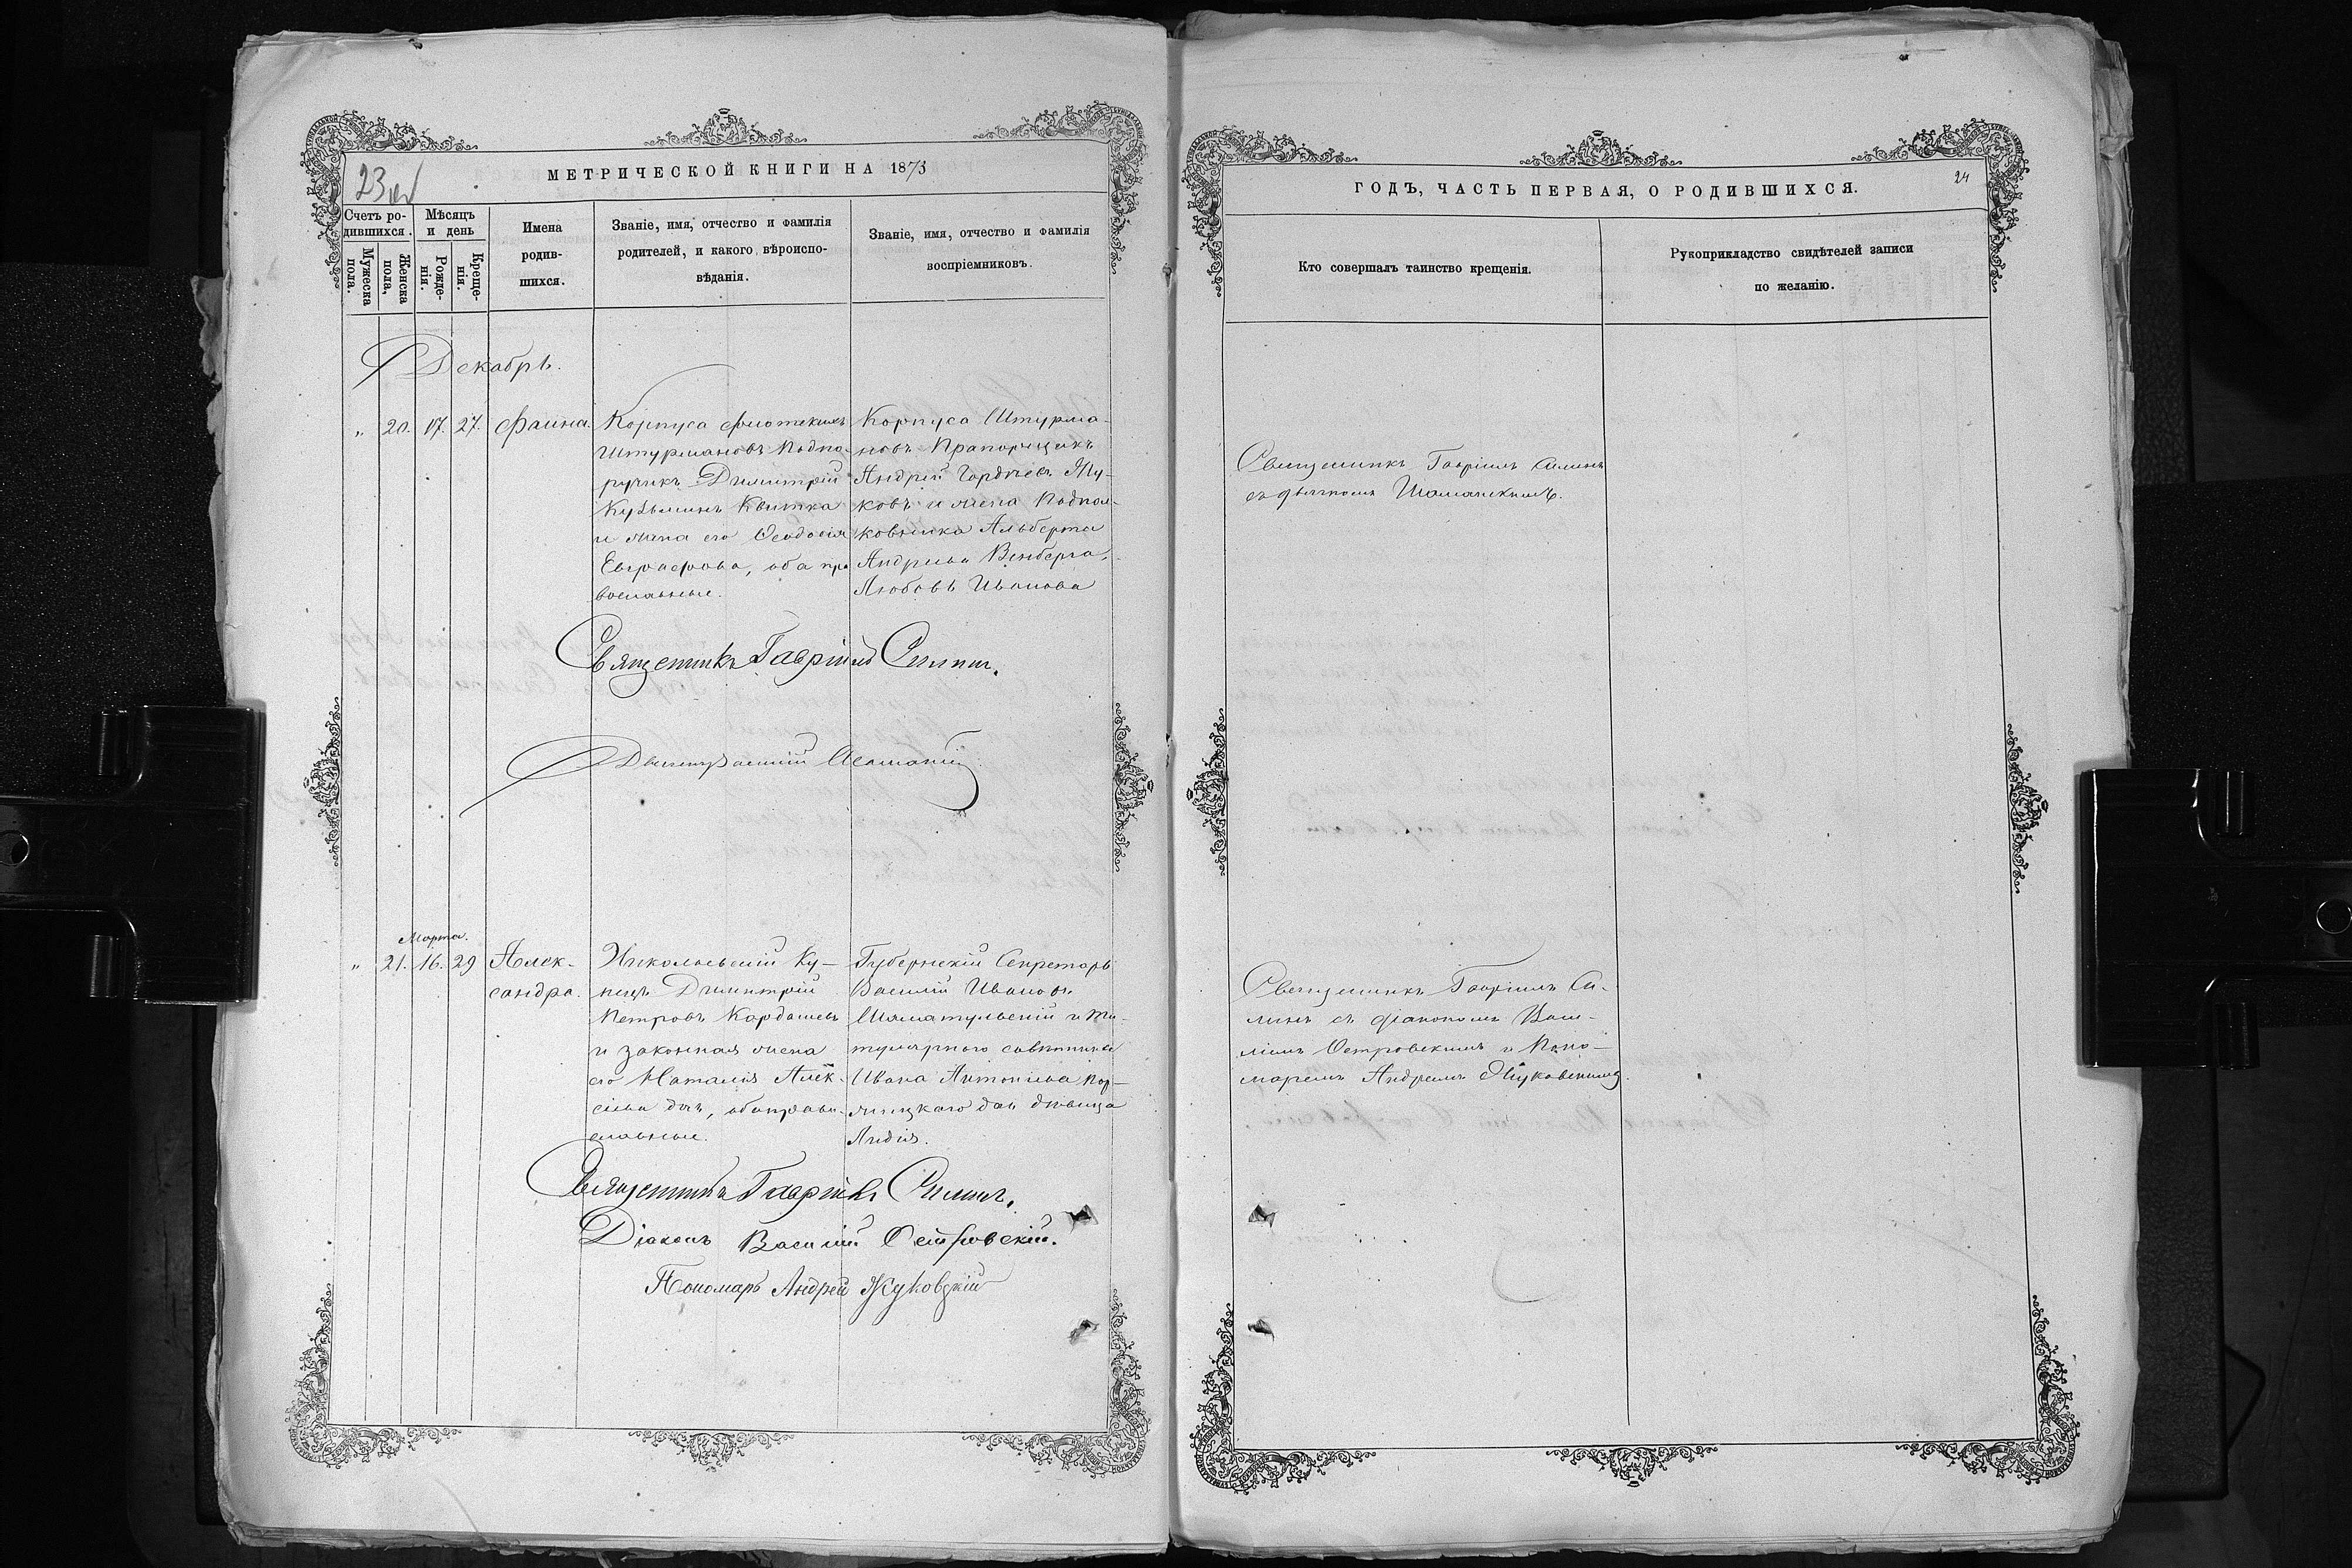 МЕТРИЧЕСКОЙ КНИГИ НА 1873
23
Счетъ ро-
дившихся.
Мѣсяцъ
и день
Имена
родив-
шихся.
Званіе, имя, отчество и фамилія
родителей, и какого вѣроиспо-
вѣданія.
Званіе, имя, отчество и фамилія
воспріемниковъ.
Мужеска
пола.
Женска
пола,
Рожде-
нія.
Креще-
нія.
Декабрь.
„ 20. 17. 27. Фаина.
Корпуса флотскихъ
Штурмановъ Подпо-
ручикъ Димитрій
Кузьминъ Квитка
и жена его Ѳеодосія
Евграфова, оба пра
вославные.
Корпуса Штурма-
новъ Прапорщикъ
Андрей Гордѣевъ Жу-
ковъ и жена Подпол-
ковника Альберта
Андреева Венберга,
Любовь Иванова
Священникъ Гавріилъ Силинъ.
Марта.
„ 21. 16. 29 Алек-
сандра.
Николаевскій Ку-
пецъ Димитрій
Петровъ Кардашевъ
и законная жена
его Наталія Алек-
сіева дочь, оба право-
славные.
Губернскій Секретарь
Василій Ивановъ
и Ти-
тулярнаго совѣтника
Ивана Антоніева
дочь дѣвица
Лидія.
Священникъ Гавріилъ Силинъ.
Діаконъ Василій Островскій.
Пономарь Андрей Жуковскій
ГОДЪ, ЧАСТЬ ПЕРВАЯ, О РОДИВШИХСЯ.
24
Кто совершалъ таинство крещенія.
Рукоприкладство свидѣтелей записи
по желанію.
Священникъ Гавріилъ Силинъ
съ дьячкомъ Шаманскимъ.
Священникъ Гавріилъ Си-
линъ съ діакономъ Васи-
ліемъ Островскимъ и Поно-
маремъ Андреемъ Жуковскимъ.